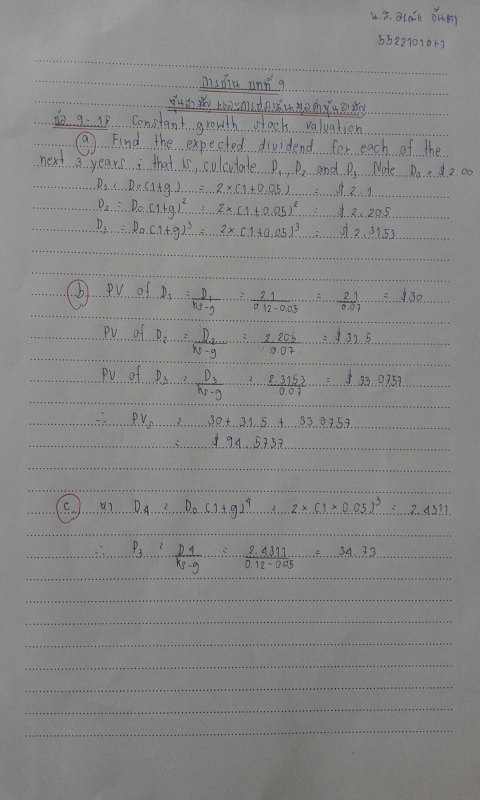 น.ส. อรณัช อันตา
5522101061
การบ้าน บทที่ 9
หุ้นสามัญ และการประเมินมูลค่าหุ้นสามัญ
ข้อ 9-18 Constant growth stock valuation
(a) Find the expected dividend for each of the
next 3 years ; that is, culculate D₁, D₂ and D₃ Note D₀ = $2.00
D₁ : D₀(1+g) = 2×(1+0.05) = $2.1
D₂ = D₀(1+g)² = 2×(1+0.05)² = $2.205
D₃ = D₀(1+g)³ = 2×(1+0.05)³ = $2.3153
(b) PV of D₁ = D₁/ks-g = 2.1/0.12-0.05 = 2.1/0.07 = $30
PV of D₂ = D₂/ks-g = 2.205/0.07 = $31.5
PV of D₃ = D₃/ks-g = 2.3153/0.07 = $33.0757
∴ PVs = 30+31.5+33.0757
= $94.5757
(c) หา D4 = D₀(1+g)⁴ = 2×(1×0.05)³ = 2.4311
∴ P₃ = D4/ks-g = 2.4311/0.12-0.05 = 34.73